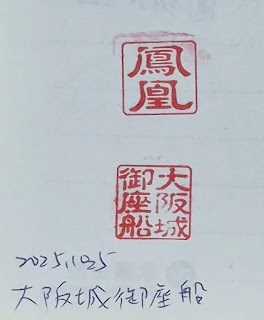 鳳凰
大阪城
御座船
2025.10.25
大阪城御座船